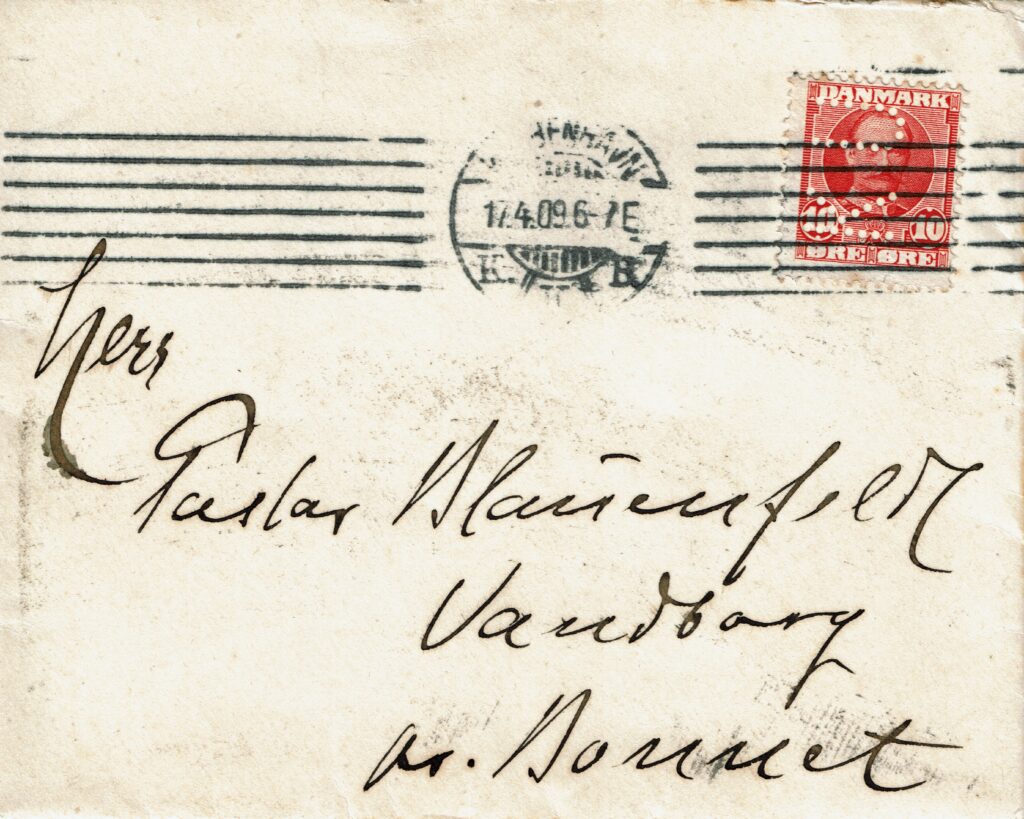 DANMARK
10 10
ØRE ØRE
17.4.09.6-7E
K. B.
Herr
Pastor Blauenfeldt
Vandborg
pr. Bonnet